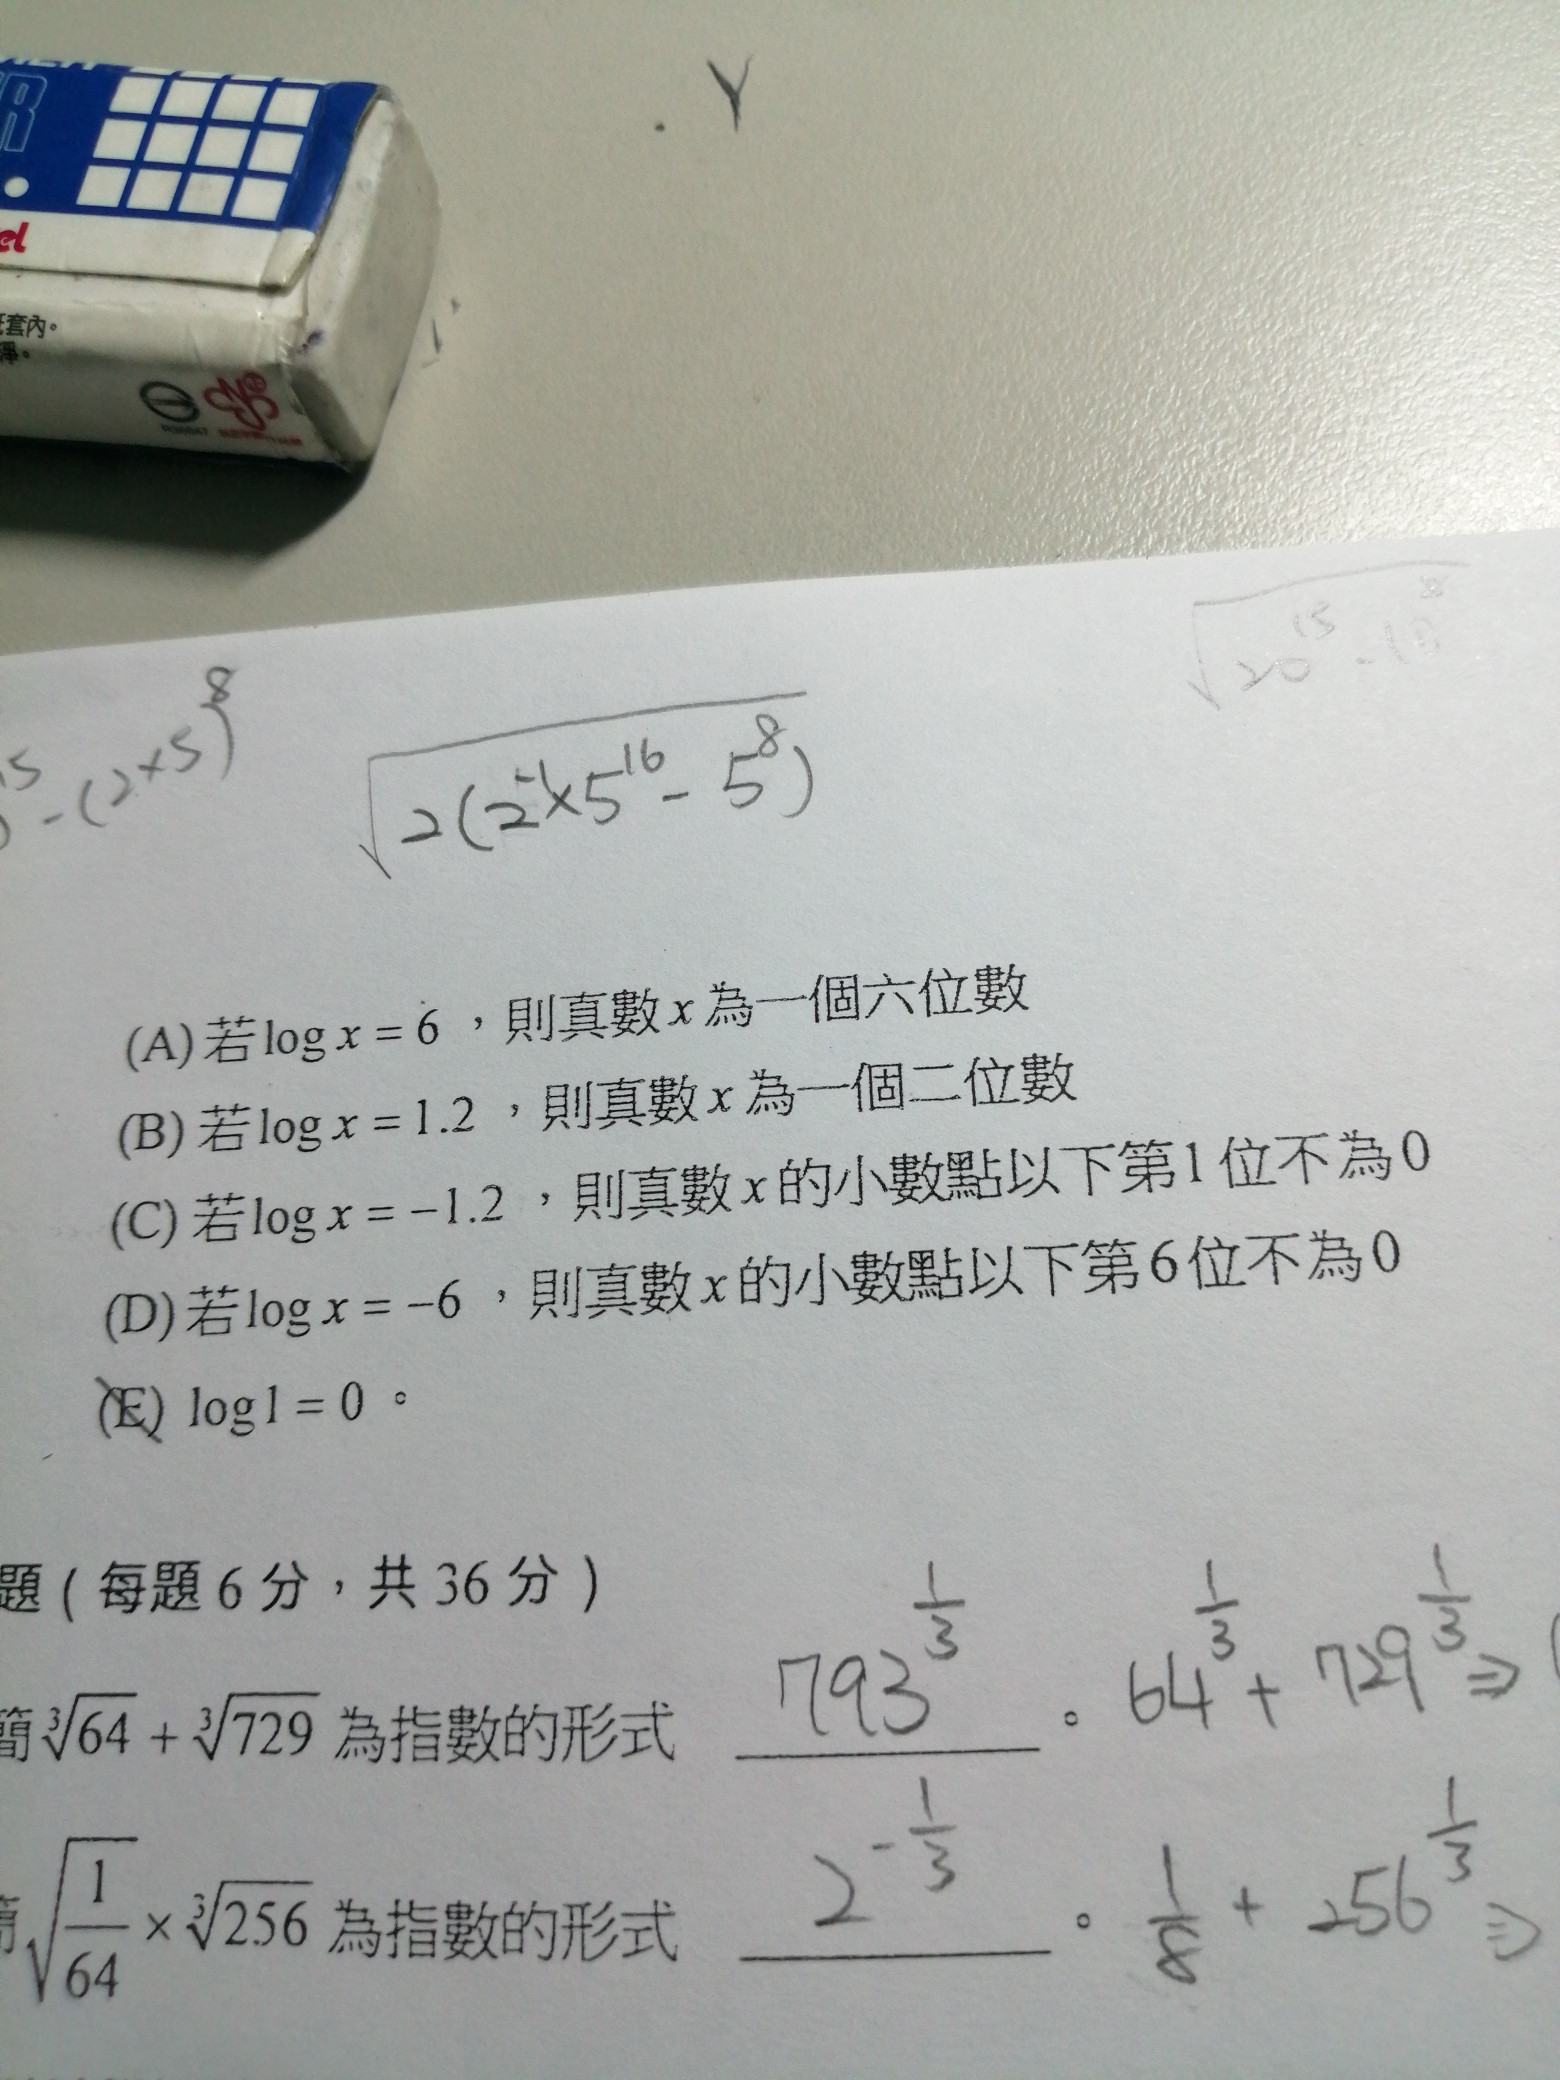 Y
紙套內。
淨。
(2×5)^8
√(2(2^-1×5^16-5^8))
(A)若log x = 6，則真數x為一個六位數
(B)若log x = 1.2，則真數x為一個二位數
(C)若log x = −1.2，則真數x的小數點以下第1位不為0
(D)若log x = −6，則真數x的小數點以下第6位不為0
(E) log1 = 0。
題(每題6分，共36分)
簡∛64 + ∛729 為指數的形式 793^(1/3) 。 64^(1/3) + 729^(1/3) ⇒
簡√(1/64) × ∛256 為指數的形式 2^(-1/3) 。 1/8 + 256^(1/3) ⇒